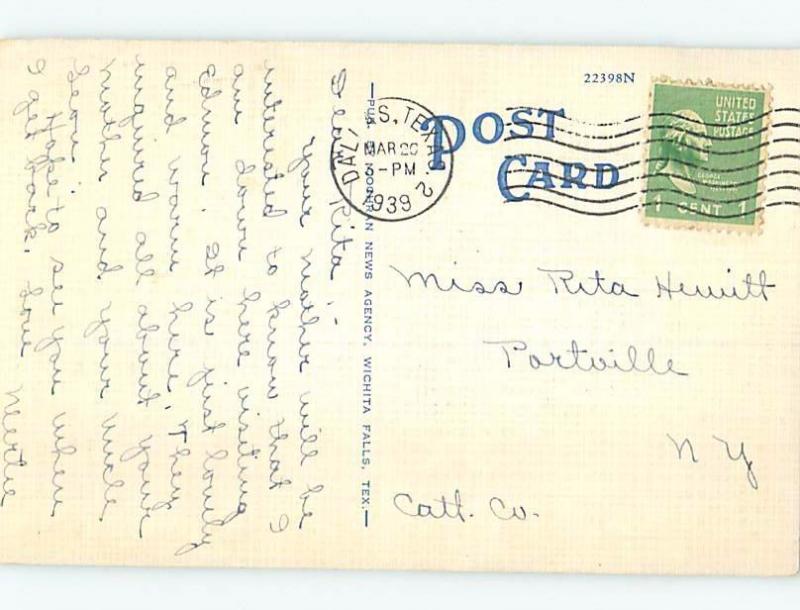 Dear Rita:-
Your mother will be
interested to know that I
am down here visiting
Edmon. It is just lovely
and warm here. They
inquired all about your
mother and your uncle
Leon.
Hope to see you when
I get back. Love Myrtle
PUB. NEWS AGENCY, WICHITA FALLS, TEX.
S, TEXAS 2
MAR 20
3-PM
1939
22398N
POST
CARD
UNITED
STATES
POSTAGE
1 CENT 1
Miss Rita Hewitt
Portville
N Y
Catt. Co.